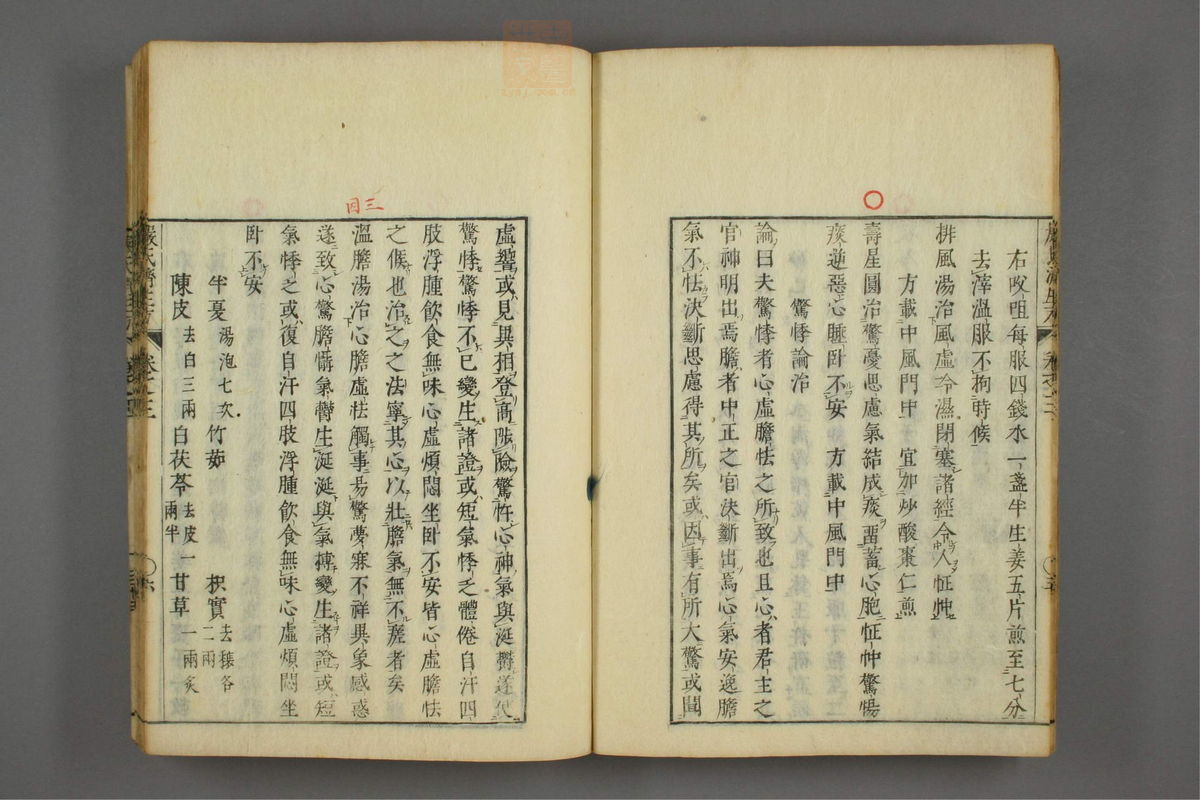 右㕮咀每服四錢水一盞半生姜五片煎至七分
去滓溫服不拘時候
排風湯治風虛冷濕閉塞諸經令人怔忡
方載中風門中 宜加炒酸棗仁煎
壽星圓治驚憂思慮氣結成痰畱蓄心胞怔忡驚惕
痰逆惡心睡臥不安 方載中風門中
驚悸論治
論曰夫驚悸者心虛膽怯之所致也且心者君主之
官神明出焉膽者中正之官決斷出焉心氣安逸膽
氣不怯決斷思慮得其所矣或因事有所大驚或聞
虛響或見異相登高陟險驚忤心神氣與涎欝遂使
驚悸驚悸不已變生諸證或短氣悸乏體倦自汗四
肢浮腫飲食無味心虛煩悶坐臥不安皆心虛膽怯
之候也治之之法寧其心以壯膽氣無不瘥者矣
三因
溫膽湯治心膽虛怯觸事易驚夢寐不祥異象感惑
遂致心驚膽懾氣欝生涎涎與氣摶變生諸證或短
氣悸乏或復自汗四肢浮腫飲食無味心虛煩悶坐
臥不安
半夏 湯泡七次 竹茹 枳實 去穰各二兩
陳皮 去白三兩 白茯苓 去皮一兩半 甘草 一兩炙